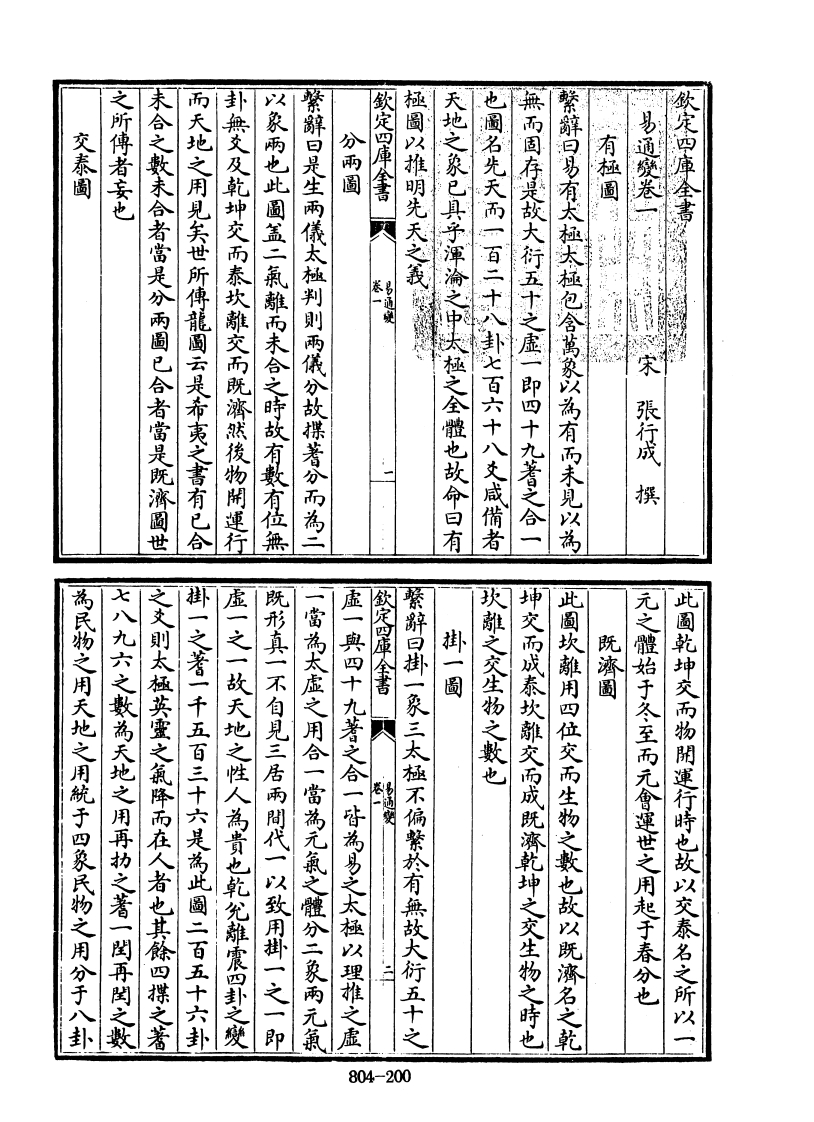 欽定四庫全書
易通變卷一
宋 張行成 撰
有極圖
繫辭曰易有太極太極包含萬象以為有而未見以為
無而固存是故大衍五十之虛一即四十九蓍之合一
也圖名先天而一百二十八卦七百六十八爻咸備者
天地之象已具乎渾淪之中太極之全體也故命曰有
極圖以推明先天之義
欽定四庫全書
易通變
卷一
一
分兩圖
繫辭曰是生兩儀太極判則兩儀分故揲蓍分而為二
以象兩也此圖蓋二氣離而未合之時故有數有位無
卦無爻及乾坤交而泰坎離交而既濟然後物開運行
而天地之用見矣世所傳龍圖云是希夷之書有已合
未合之數未合者當是分兩圖已合者當是既濟圖世
之所傳者妄也
交泰圖
此圖乾坤交而物開運行時也故以交泰名之所以一
元之體始于冬至而元會運世之用起于春分也
既濟圖
此圖坎離用四位交而生物之數也故以既濟名之乾
坤交而成泰坎離交而成既濟乾坤之交生物之時也
坎離之交生物之數也
掛一圖
繫辭曰掛一象三太極不偏繫於有無故大衍五十之
欽定四庫全書
易通變
卷一
二
虛一與四十九蓍之合一皆為易之太極以理推之虛
一當為太虛之用合一當為元氣之體分二象兩元氣
既形真一不自見三居兩間代一以致用掛一之一即
虛一之一故天地之性人為貴也乾兌離震四卦之變
掛一之蓍一千五百三十六是為此圖二百五十六卦
之爻則太極英靈之氣降而在人者也其餘四揲之蓍
七八九六之數為天地之用再扐之蓍一閏再閏之數
為民物之用天地之用統于四象民物之用分于八卦
804-200